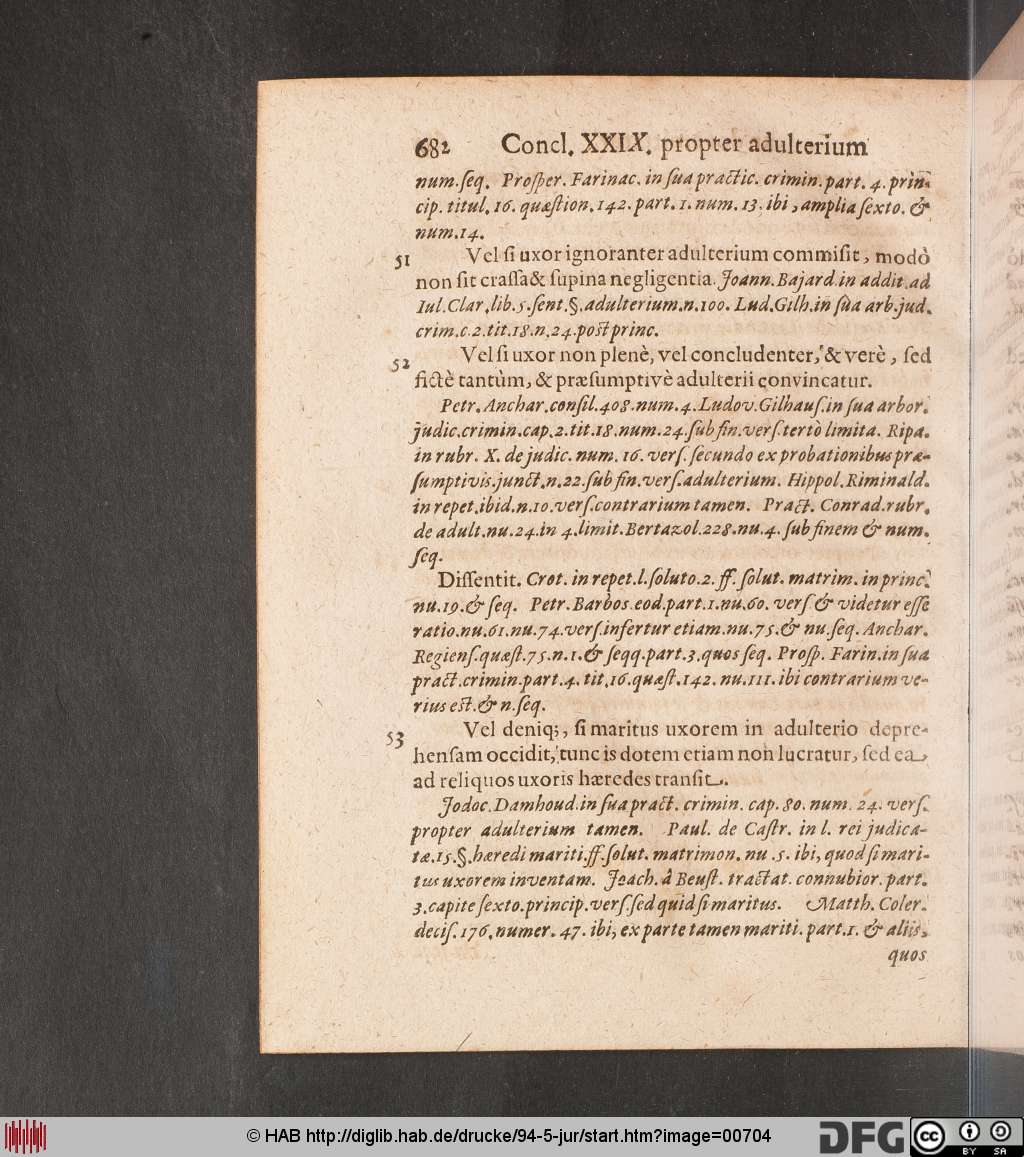 682 Concl. XXIX. propter adulterium
num.ſeq. Proſper. Farinac. in ſua practic. crimin. part. 4. prin-
cip. titul. 16. quæſtion. 142. part. 1. num. 13. ibi, amplia ſexto. &
num. 14.
51 Vel ſi uxor ignoranter adulterium commiſit, modò
non ſit craſſa & ſupina negligentia. Joann. Bajard. in addit. ad
Iul. Clar. lib. 5. ſent. §. adulterium. n. 100. Lud. Gilh. in ſua arb. jud.
crim. c. 2. tit. 18. n. 24. poſt princ.
52 Vel ſi uxor non plenè, vel concludenter, & verè, ſed
fictè tantùm, & præſumptivè adulterii convincatur.
Petr. Anchar. conſil. 408. num. 4. Ludov. Gilhauſ. in ſua arbor.
judic. crimin. cap. 2. tit. 18. num. 24. ſub fin. verſ. tertò limita. Ripa.
in rubr. X. de judic. num. 16. verſ. ſecundo ex probationibus præ-
ſumptivis. junct. n. 22. ſub fin. verſ. adulterium. Hippol. Riminald.
in repet. ibid. n. 10. verſ. contrarium tamen. Pract. Conrad. rubr.
de adult. nu. 24. in 4. limit. Bertazol. 228. nu. 4. ſub finem & num.
ſeq.
Diſſentit. Crot. in repet. l. ſoluto. 2. ff. ſolut. matrim. in princ.
nu. 19. & ſeq. Petr. Barbos. eod. part. 1. nu. 60. verſ. & videtur eſſe
ratio. nu. 61. nu. 74. verſ. infertur etiam. nu. 75. & nu. ſeq. Anchar.
Regienſ. quæſt. 75. n. 1. & ſeqq. part. 3. quos ſeq. Proſp. Farin. in ſua
pract. crimin. part. 4. tit. 16. quæſt. 142. nu. 111. ibi contrarium ve-
rius eſt. & n. ſeq.
53 Vel deniq;, ſi maritus uxorem in adulterio depre-
henſam occidit, tunc is dotem etiam non lucratur, ſed ea
ad reliquos uxoris hæredes tranſit.
Jodoc. Damhoud. in ſua pract. crimin. cap. 80. num. 24. verſ.
propter adulterium tamen. Paul. de Caſtr. in l. rei judica-
tæ. 15. §. hæredi mariti. ff. ſolut. matrimon. nu. 5. ibi, quod ſi mari-
tus uxorem inventam. Joach. â Beuſt. tractat. connubior. part.
3. capite ſexto. princip. verſ. ſed quid ſi maritus. Matth. Coler.
deciſ. 176. numer. 47. ibi, ex parte tamen mariti. part. 1. & aliis,
quos
© HAB http://diglib.hab.de/drucke/94-5-jur/start.htm?image=00704
DFG
CC BY SA